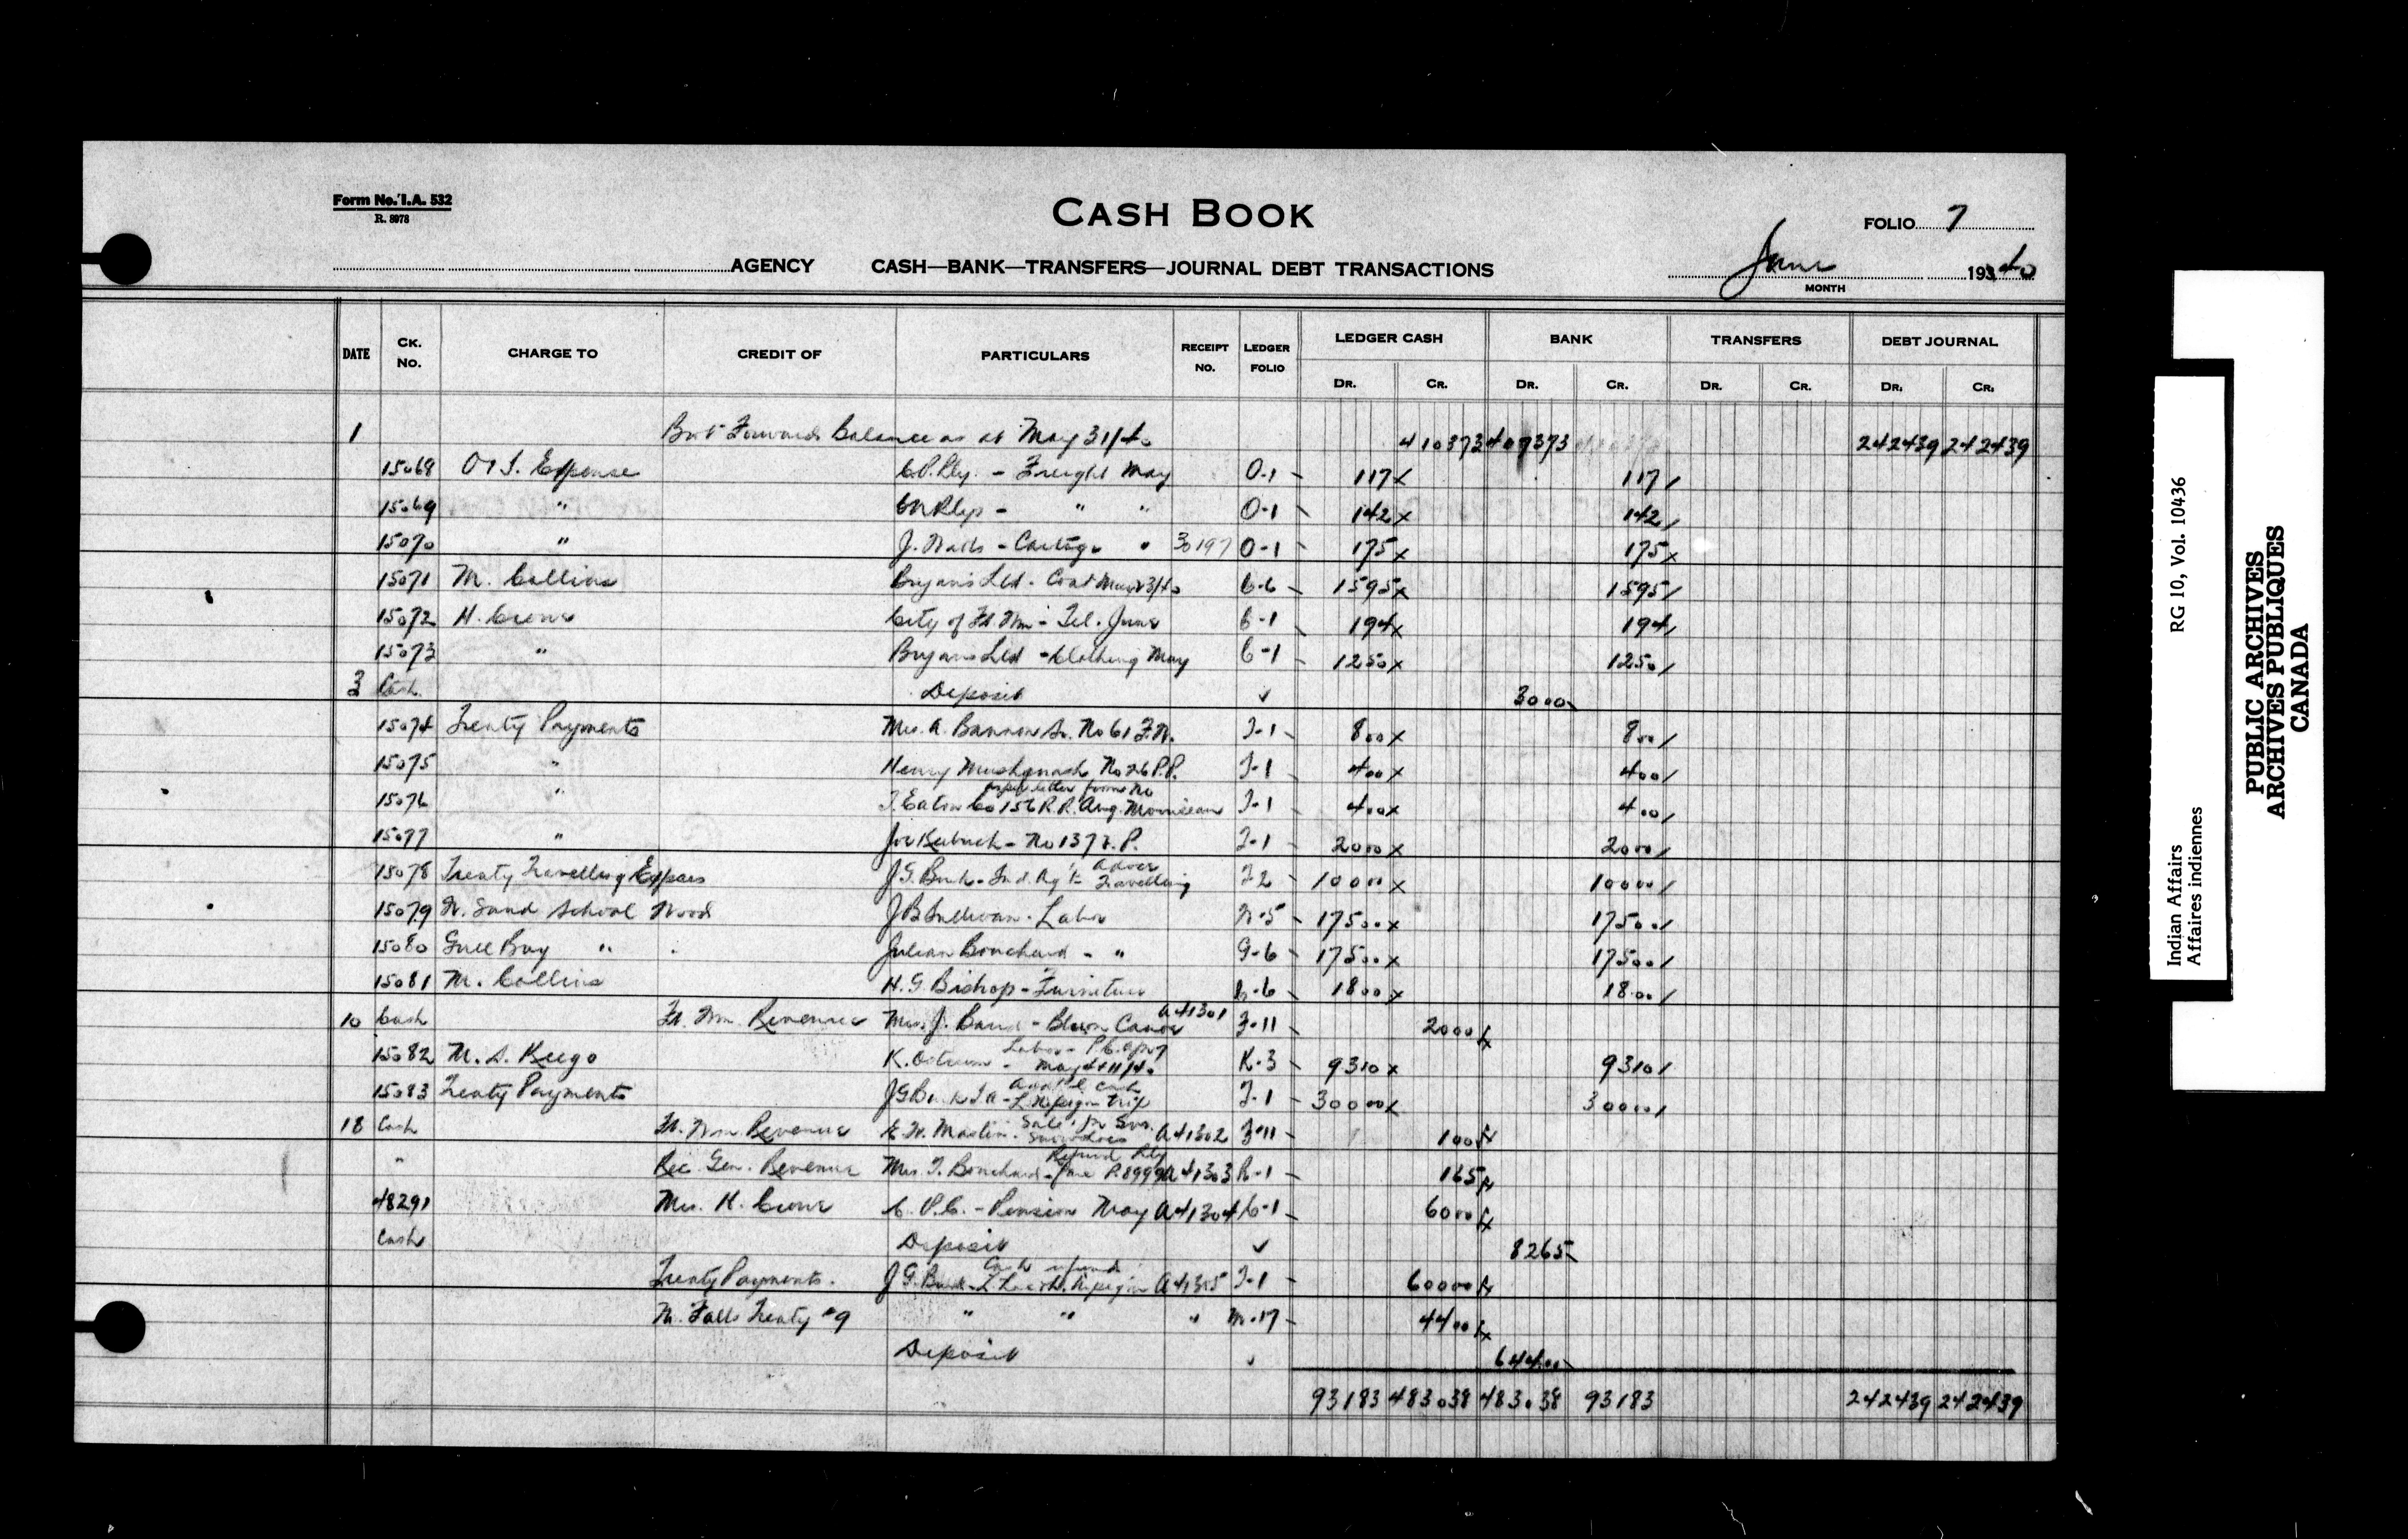 Form No. I.A. 532
R. 8978
CASH BOOK
FOLIO 7
AGENCY CASH—BANK—TRANSFERS—JOURNAL DEBT TRANSACTIONS
June 1940
MONTH
DATE CK. NO. CHARGE TO CREDIT OF PARTICULARS RECEIPT NO. LEDGER FOLIO LEDGER CASH BANK TRANSFERS DEBT JOURNAL
DR. CR. DR. CR. DR. CR. DR. CR.
1 Bro't Forward Balance as at May 31/40 410373 407373 242439 242439
15068 Expense C.P.Rly. - Freight May O-1 117 x 117 /
15069 " CNRlys - " " O-1 142 x 142 /
15070 " J. - Cartage " 30197 O-1 175 x 175 x
15071 M. Collins Bryans Ltd. - Coat May 23/40 C-6 1595 x 1595 /
15072 H. Crowe City of Ft. Wm - Tel. June C-1 194 x 194 /
15073 " Bryans Ltd - Clothing May C-1 1250 x 1250 /
3 Cash Deposit ✓ 3000
15074 Treaty Payments Mrs. A. Bannon Sr. No 61 F.W. T-1 800 x 800 /
15075 " Henry No 26 P.P. T-1 400 x 400 /
15076 " T. Eaton Co as per letter from No 156 R.R. Aug. T-1 400 x 400 /
15077 " Joe - No 137 T-1 2000 x 2000 /
15078 Treaty Travelling Expses J.G. Burk - Ind. Ag't Advce Travelling T-2 10000 x 10000 /
15079 W. Sand School Wood J B Sullivan - Labor W-5 17500 x 17500 /
15080 Gull Bay " Julian Bouchard - " G-6 17500 x 17500 /
15081 M. Collins H. G. Bishop - Furniture C-6 1800 x 1800 /
10 Cash Ft. Wm Revenue Mrs. J. Baird - Canoe A41301 F-11 2000
15082 M. S. K. Labor - May 4 + 11/40 K-3 9310 x 9310 /
15083 Treaty Payments J G Burk I A - L. Nipigon trip T-1 30000 x 30000 /
18 Cash Ft. Wm Revenue E. W. Martin - Sale A41302 F-11 100
" Rec. Gen. Revenue Mrs. T. Bouchard - Refund Rly fare A41303 R-1 165
48291 Mrs. H. Crowe C. P. C. - Pension May A41304 C-1 6000
Cash Deposit ✓ 8265
Treaty Payments. J G Burk - Cash refund Nipigon A41305 T-1 60000
M. Falls Treaty #9 " " " M-17 4400
Deposit ✓ 64400
93183 483038 483038 93183 242439 242439
Indian Affairs RG 10, Vol. 10436
Affaires indiennes
PUBLIC ARCHIVES
ARCHIVES PUBLIQUES
CANADA